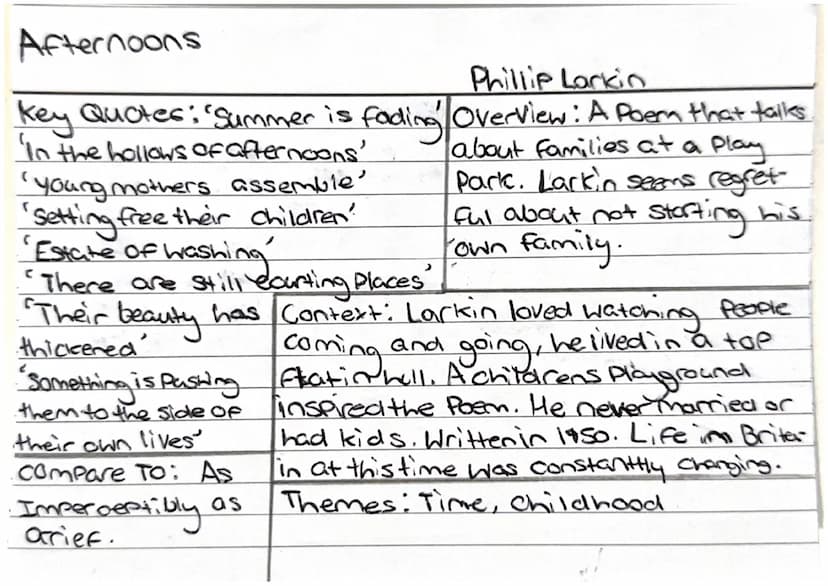 Afternoons
Phillip Larkin
Key Quotes: 'Summer is fading'
'In the hollows of afternoons'
'young mothers assemble'
'Setting free their children'
'Estate of washing'
'There are still courting places'
'Their beauty has
thickened'
'Something is pushing
them to the side of
their own lives'
Compare to: As
Imperceptibly as
Grief.
Overview: A Poem that talks
about families at a play
Park. Larkin seems regret-
ful about not starting his
own family.
Context: Larkin loved watching people
coming and going, he lived in a top
flat in hull. A childrens playground
inspired the Poem. He never married or
had kids. Written in 1950. Life in Brita-
in at this time was constantly changing.
Themes: Time, Childhood